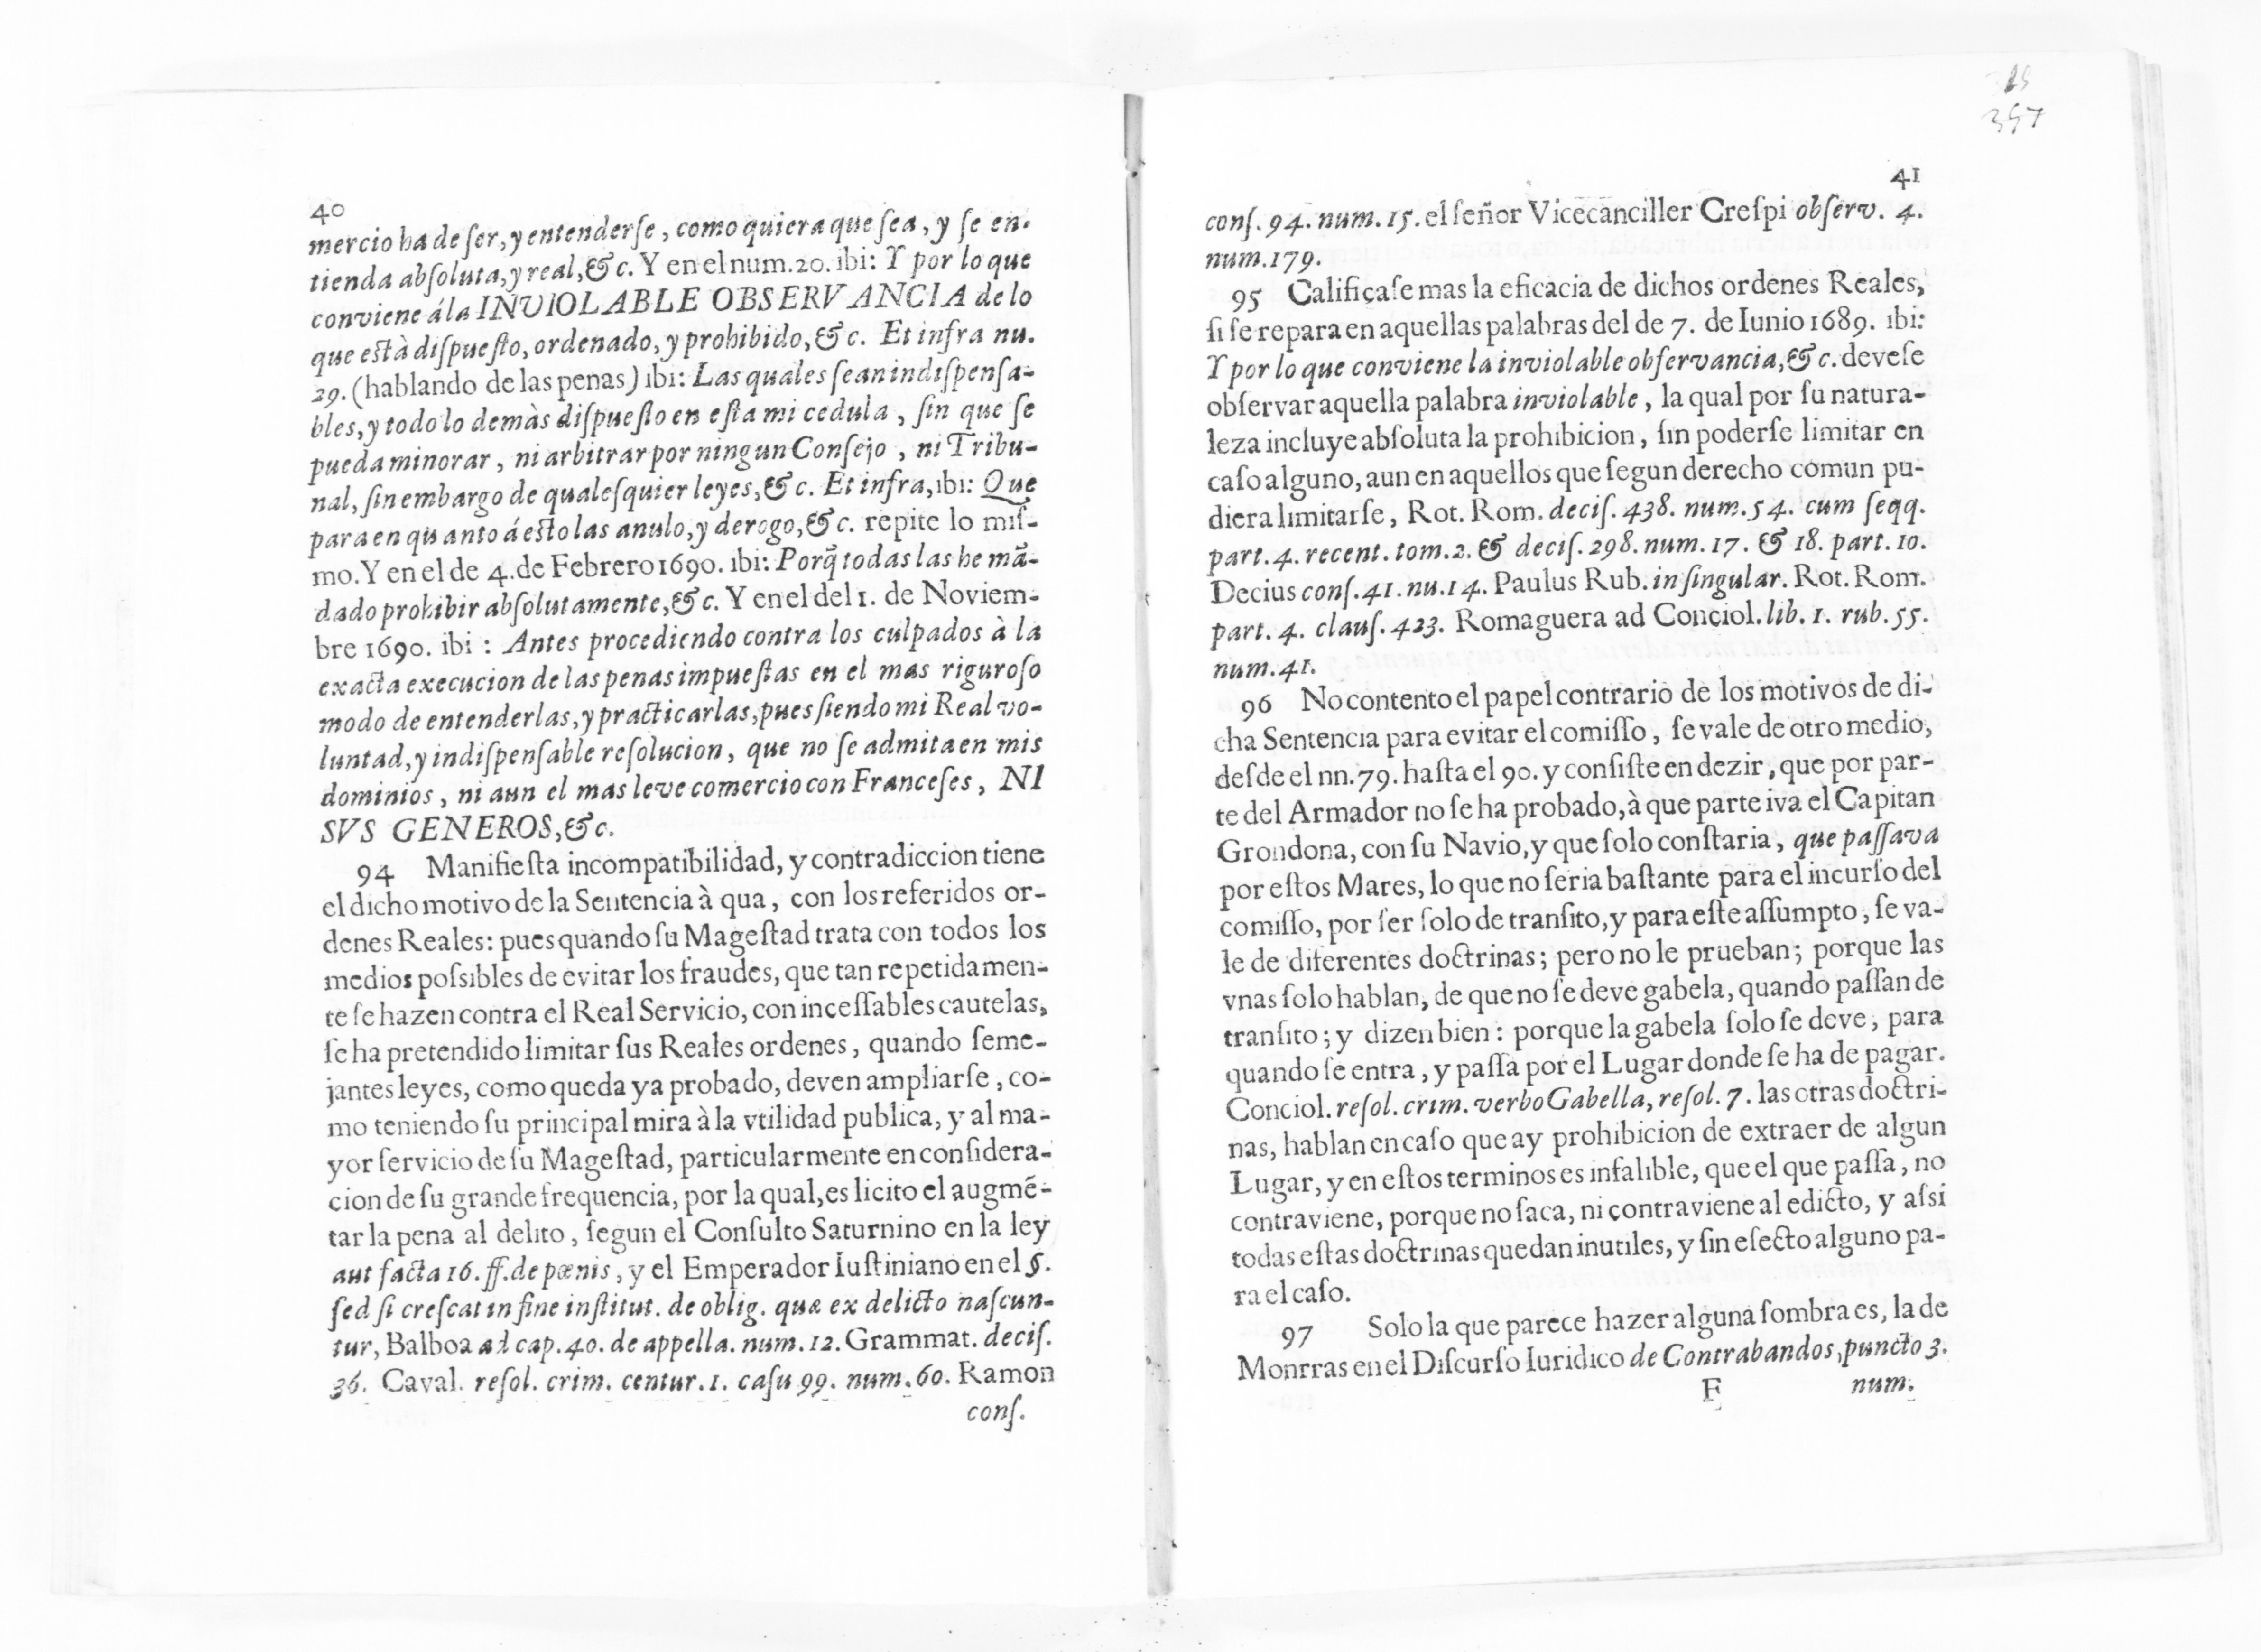 40
mercio ha de ser, y entenderse, como quiera que sea, y se en-
tienda absoluta, y real, &c. Y en el num. 20. ibi: Y por lo que
conviene á la INVIOLABLE OBSERVANCIA de lo
que està dispuesto, ordenado, y prohibido, &c. Et infra nu.
29. (hablando de las penas) ibi: Las quales sean indispensa-
bles, y todo lo demàs dispuesto en esta mi cedula, sin que se
pueda minorar, ni arbitrar por ningun Consejo, ni Tribu-
nal, sin embargo de qualesquier leyes, &c. Et infra, ibi: Que
para en quanto á esto las anulo, y derogo, &c. repite lo mis-
mo. Y en el de 4. de Febrero 1690. ibi: Porq̃ todas las he mã-
dado prohibir absolutamente, &c. Y en el del 1. de Noviem-
bre 1690. ibi: Antes procediendo contra los culpados à la
exacta execucion de las penas impuestas en el mas riguroso
modo de entenderlas, y practicarlas, pues siendo mi Real vo-
luntad, y indispensable resolucion, que no se admita en mis
dominios, ni aun el mas leve comercio con Franceses, NI
SVS GENEROS, &c.
94 Manifiesta incompatibilidad, y contradiccion tiene
el dicho motivo de la Sentencia à qua, con los referidos or-
denes Reales: pues quando su Magestad trata con todos los
medios possibles de evitar los fraudes, que tan repetidamen-
te se hazen contra el Real Servicio, con incessables cautelas,
se ha pretendido limitar sus Reales ordenes, quando seme-
jantes leyes, como queda ya probado, deven ampliarse, co-
mo teniendo su principal mira à la vtilidad publica, y al ma-
yor servicio de su Magestad, particularmente en considera-
cion de su grande frequencia, por la qual, es licito el augmẽ-
tar la pena al delito, segun el Consulto Saturnino en la ley
aut facta 16. ff. de pœnis, y el Emperador Iustiniano en el §.
sed si crescat in fine institut. de oblig. quæ ex delicto nascun-
tur, Balboa ad cap. 40. de appella. num. 12. Grammat. decis.
36. Caval. resol. crim. centur. 1. casu 99. num. 60. Ramon
cons.
357
41
cons. 94. num. 15. el señor Vicecanciller Crespi observ. 4.
num. 179.
95 Calificase mas la eficacia de dichos ordenes Reales,
si se repara en aquellas palabras del de 7. de Iunio 1689. ibi:
Y por lo que conviene la inviolable observancia, &c. devese
observar aquella palabra inviolable, la qual por su natura-
leza incluye absoluta la prohibicion, sin poderse limitar en
caso alguno, aun en aquellos que segun derecho comun pu-
diera limitarse, Rot. Rom. decis. 438. num. 54. cum seqq.
part. 4. recent. tom. 2. & decis. 298. num. 17. & 18. part. 10.
Decius cons. 41. nu. 14. Paulus Rub. in singular. Rot. Rom.
part. 4. claus. 423. Romaguera ad Conciol. lib. 1. rub. 55.
num. 41.
96 No contento el papel contrario de los motivos de di-
cha Sentencia para evitar el comisso, se vale de otro medio,
desde el nn. 79. hasta el 90. y consiste en dezir, que por par-
te del Armador no se ha probado, à que parte iva el Capitan
Grondona, con su Navio, y que solo constaria, que passava
por estos Mares, lo que no seria bastante para el incurso del
comisso, por ser solo de transito, y para este assumpto, se va-
le de diferentes doctrinas; pero no le prueban; porque las
vnas solo hablan, de que no se deve gabela, quando passan de
transito; y dizen bien: porque la gabela solo se deve, para
quando se entra, y passa por el Lugar donde se ha de pagar.
Conciol. resol. crim. verbo Gabella, resol. 7. las otras doctri-
nas, hablan en caso que ay prohibicion de extraer de algun
Lugar, y en estos terminos es infalible, que el que passa, no
contraviene, porque no saca, ni contraviene al edicto, y assi
todas estas doctrinas quedan inutiles, y sin efecto alguno pa-
ra el caso.
97 Solo la que parece hazer alguna sombra es, la de
Monrras en el Discurso Iuridico de Contrabandos, puncto 3.
F num.